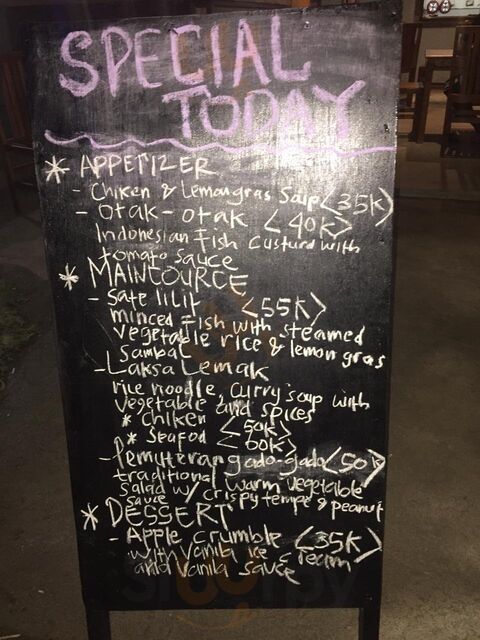 SPECIAL
TODAY
* APPETIZER
- Chiken & Lemongras Soup <35K>
- Otak-otak <40K>
Indonesian Fish custurd with
tomato sauce
* MAINCOURCE
- Sate lilit <55K>
minced Fish with steamed
vegetable rice & lemon gras
Sambal
- Laksa Lemak
rice noodle, curry soup with
vegetable and spices
* chiken <50K>
* seafod <60K>
- Pemuteran gado-gado <50K>
traditional warm vegetable
Salad w/ crispy tempe & peanut
sauce
* DESSERT
- Apple crumble <35K>
with Vanila ice cream
and Vanila sauce